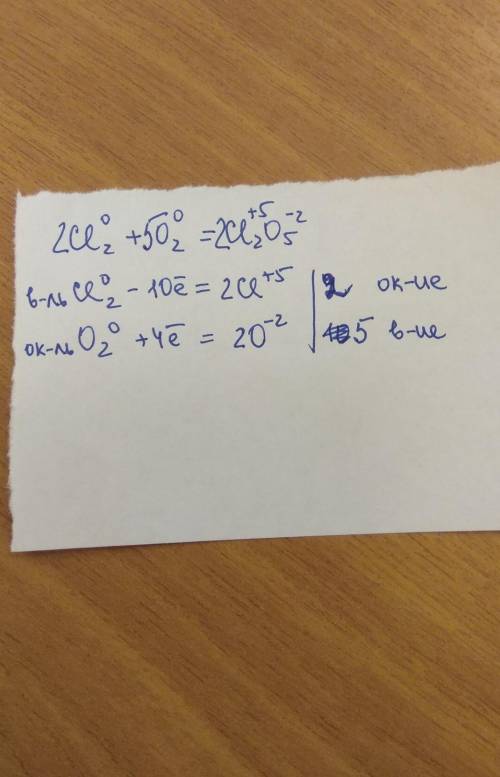 2Cl₂⁰ + 5O₂⁰ = 2Cl₂⁺⁵O₅⁻²
в-ль Cl₂⁰ - 10ē = 2Cl⁺⁵ | 2 ок-ие
ок-ль O₂⁰ + 4ē = 2O⁻² | 5 в-ие